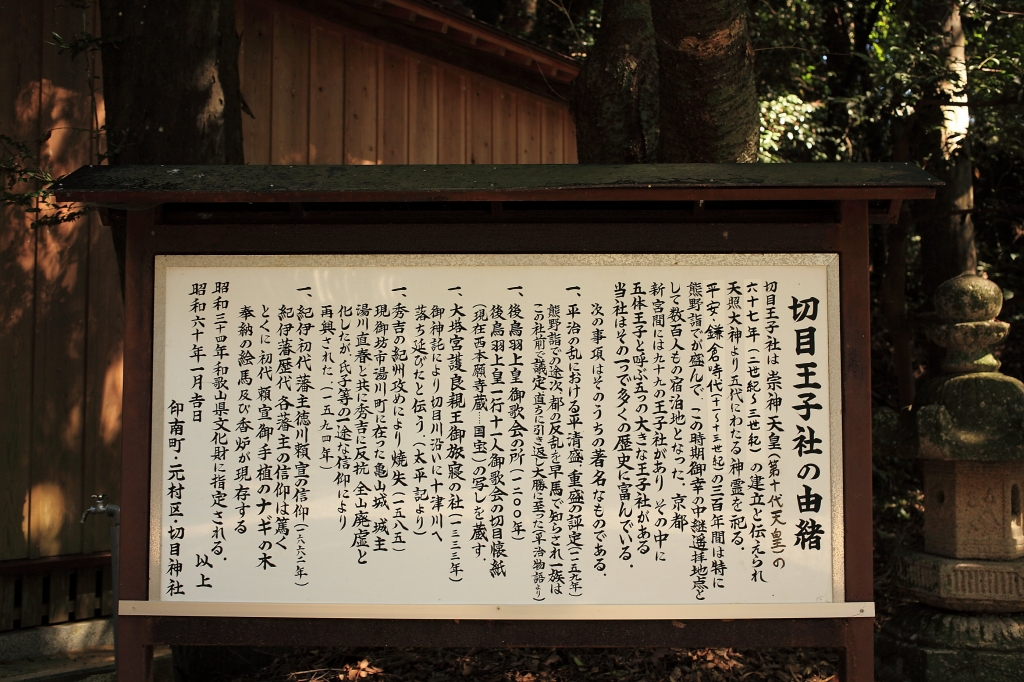 切目王子社の由緒
切目王子社は崇神天皇(第十代天皇)の
六十七年(二世紀～三世紀)の建立と伝えられ
天照大神より五代にわたる神霊を祀る.
平安・鎌倉時代(十一～十三世紀)の三百年間は特に
熊野詣でが盛んで、この時期御幸の中継遥拝地点と
して数百人もの宿泊地となった.京都
新宮間には九十九の王子社があり その中に
五体王子と呼ぶ五つの大きな王子社がある
当社はその一つで多くの歴史に富んでいる.
次の事項はそのうちの著名なものである.
一、平治の乱における平清盛 重盛の評定(一一五九年)
熊野詣での途次 都の反乱を早馬で知らされ一族は
この社前で議定 直ちに引き返し大勝に至った(平治物語より)
一、後鳥羽上皇 御歌会の所(一二〇〇年)
後鳥羽上皇一行十一人御歌会の切目懐紙
(現在西本願寺蔵…国宝)の写しを蔵す.
一、大塔宮護良親王御旅寝の社(一三三三年)
御神託により切目川沿いに十津川へ
落ち延びたと伝う.(太平記より)
一、秀吉の紀州攻めにより焼失(一五八五)
現御坊市湯川町に在った亀山城、城主
湯川直春と共に秀吉に反抗 全山廃虚と
化したが、氏子等の一途な信仰により
再興された.(一五九四年)
一、紀伊初代藩主徳川頼宣の信仰(一六六二年)
紀伊藩歴代 各藩主の信仰は篤く
とくに初代 頼宣御手植のナギの木
奉納の絵馬 及び香炉が現存する
昭和三十四年和歌山県文化財に指定される. 以上
昭和六十年一月吉日
印南町・元村区・切目神社